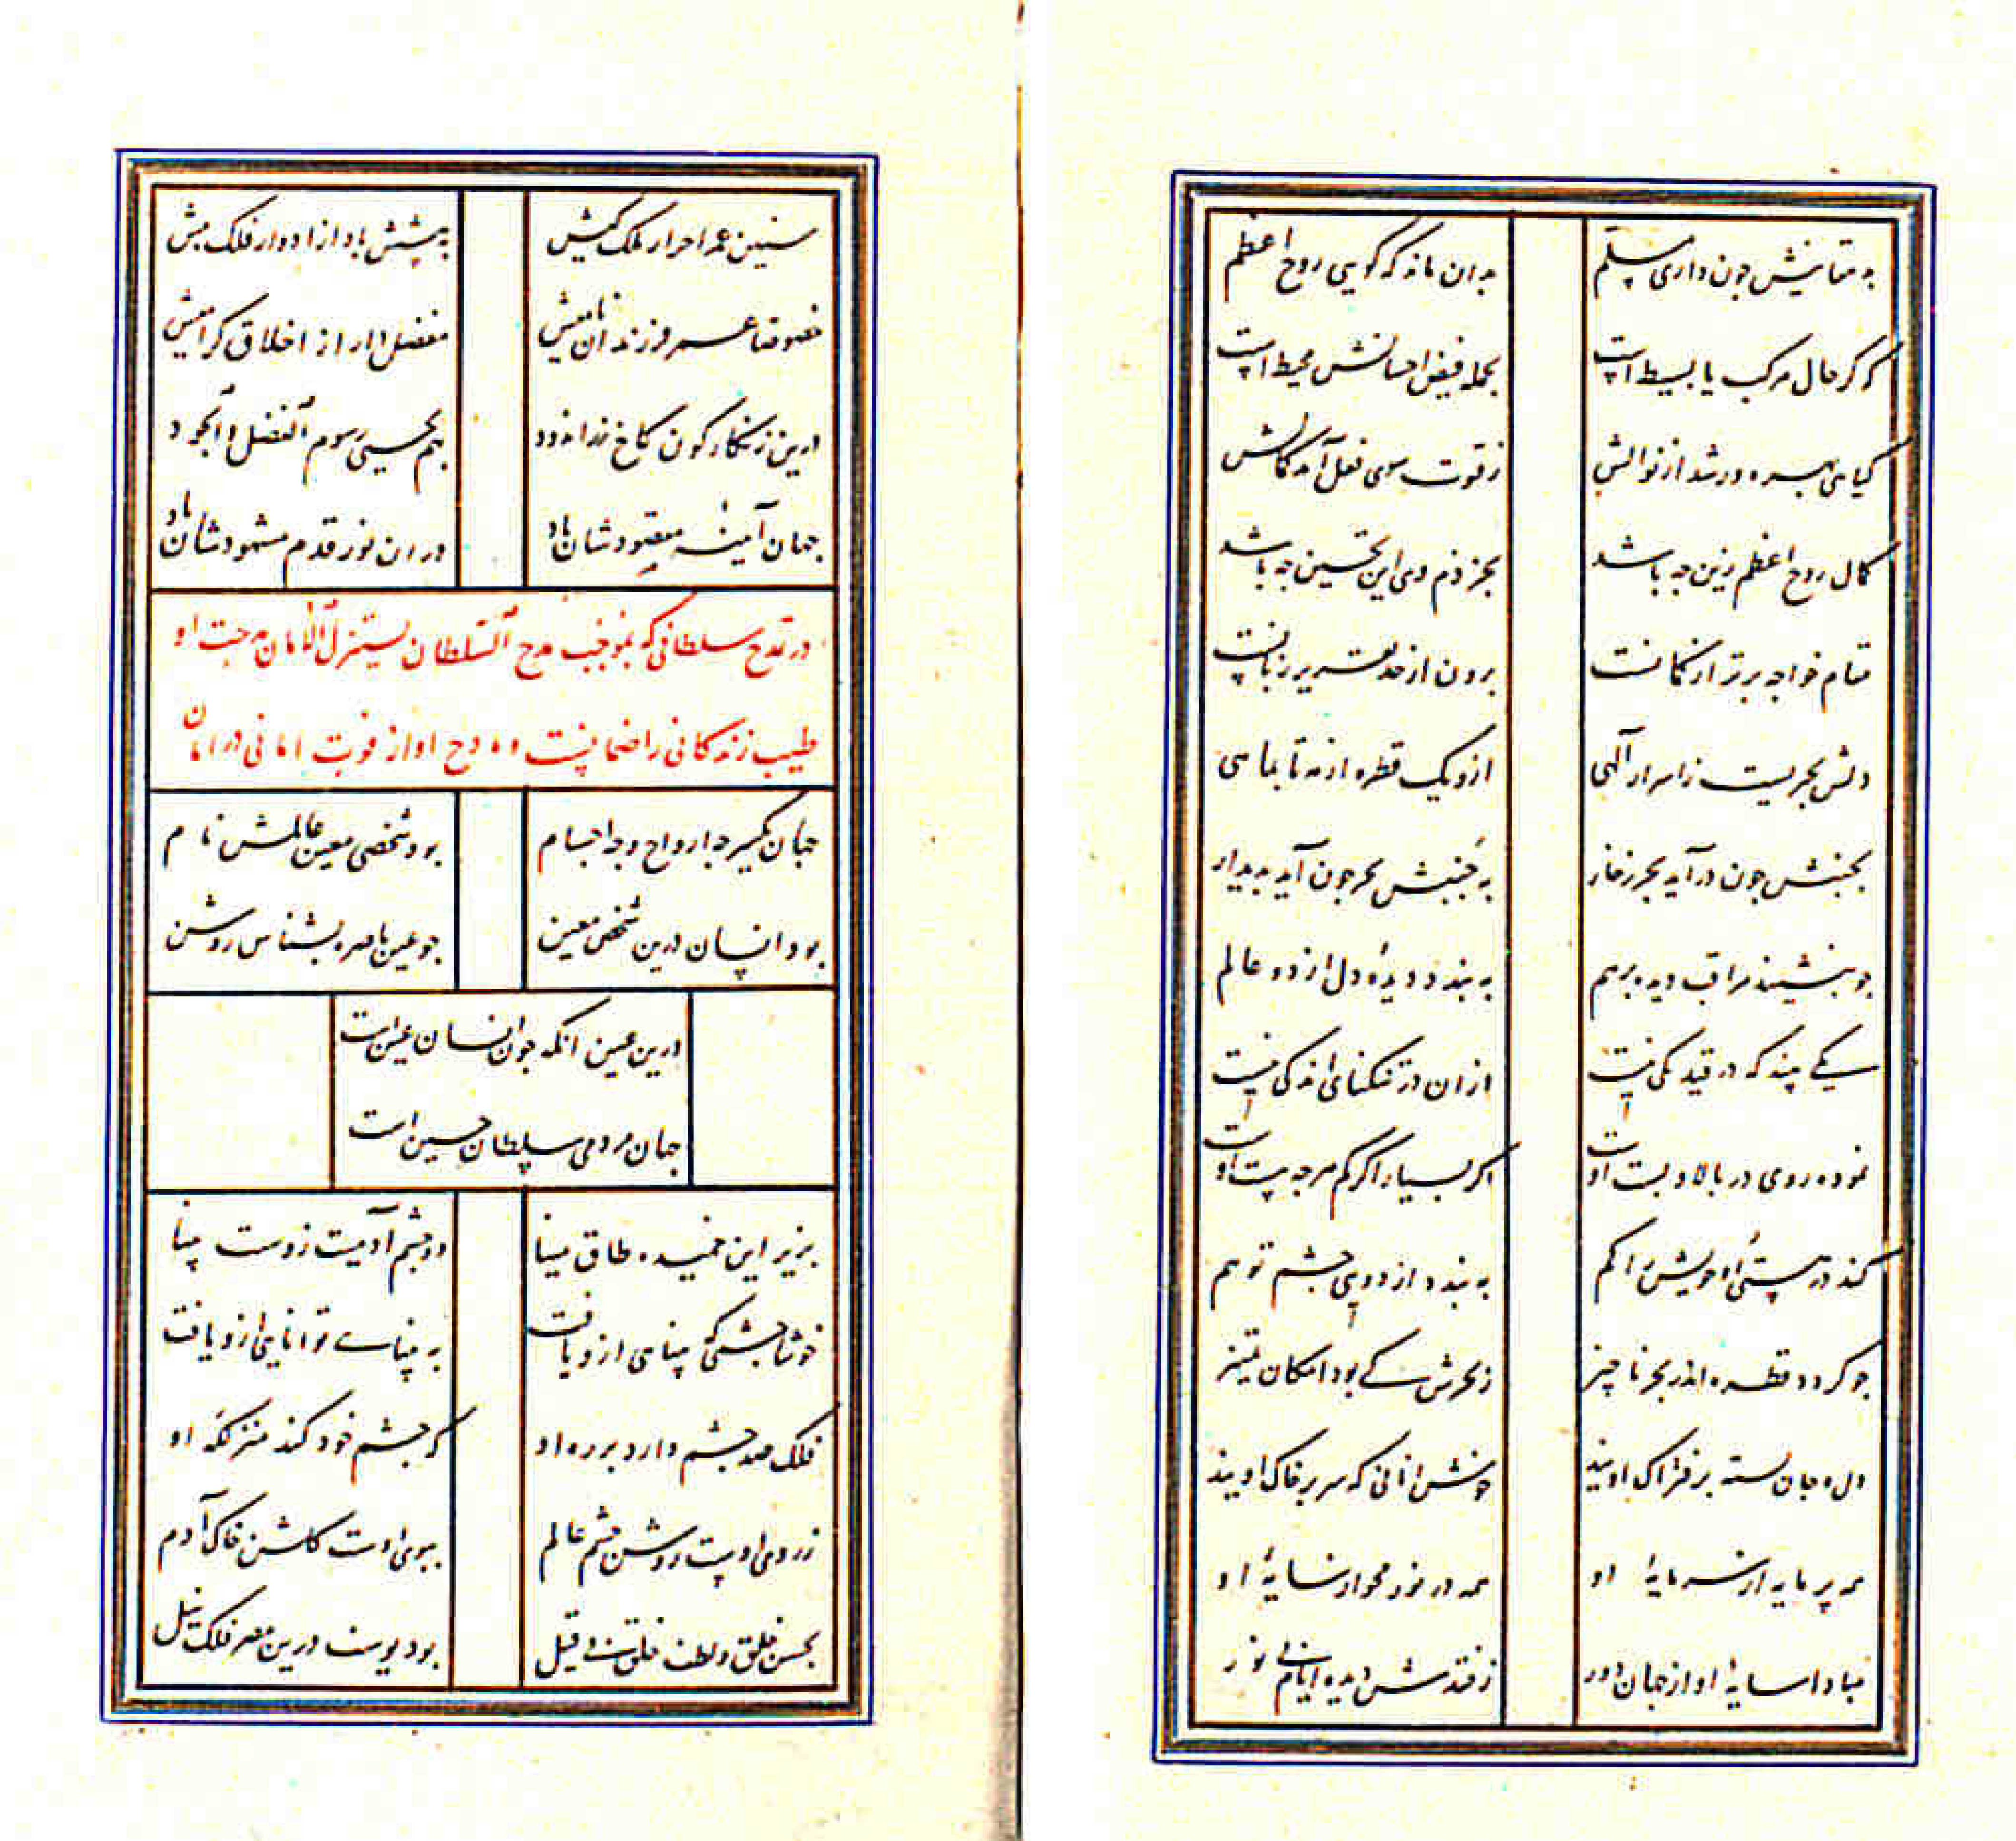 جون داری مسلم بدان ماند که گویی روح اعظم
که گر حال مرکب یا بسیط است بجمله فیض احسانش محیط است
گیاهی بهره ور شد از نوالش ز قوت سوی فعل آمد کمالش
کمال روح اعظم زین جه باشد بجز ذم وی این تحسین جه باشد
مقام خواجه برتر از کمانست برون از حد تقریر زبانست
دلش بحریست ز اسرار آلهی ازو یک قطره از مه تا بماهی
بجنبش جون درآید بحر زخار به جنبش بحر جون آید بدیدار
جو بنشیند مراقب دیده برهم به بندد دیدهٔ دل از دو عالم
یکی بیند که در قید یکی نیست ازان در تنکنای اندکی نیست
نموده روی در بالا و بست اوست اکر بسیار اکر کم هرجه هست اوست
کند در هستیٔ او خویش را کم به بندد از دویی جشم توهم
جو کردد قطره اندر بحر ناچیز ز بحرش کی بود امکان تمییز
دل و جان بسته بر فتراک اویند خوش آنانی که سر بر خاک اویند
همه پر مایه از سرمایهٔ او همه در نور محو از سایهٔ او
مبادا سایهٔ او از جهان دور ز فقدش دیده ایام بی نور
سنین عمر احرار ملک کیش به بیشش باد از ادوار فلک بیش
خصوصا عمر فرزندان نامیش مفضل دار از اخلاق کرامیش
درین زنکارکون کاخ زراندود بهم یحیی رسوم الفضل و الجود
جهان آیینهٔ مقصودشان باد در ان نور قدم مشهودشان باد
در مدح سلطانی که بموجب مدح السلطان یستنزل الامان مرحبت او
طیب زندکانی را ضمانیست و مادح او از فوت امانی در امان
جهان یکسر جه ارواح و جه اجسام بود شخصی معین عالمش نام
بود انسان درین شخص معین جو عین باصره بشناس روشن
درین عین انکه جون انسان عین است
جهان مردمی سلطان حسین است
بزیر این خمیده طاق مینا دو جشم آدمیت زوست بینا
خوشا جشمی که بینایی ازو یافت به بینایی توانایی ازو یافت
فلک صد جشم دارد بر ره او که جشم خود کند منزلکه او
ز روی اوست روشن جشم عالم ببوی اوست کلشن خاک آدم
بحسن خلق و لطف خلق بی قیل بود یوسف درین مصر فلک نیل